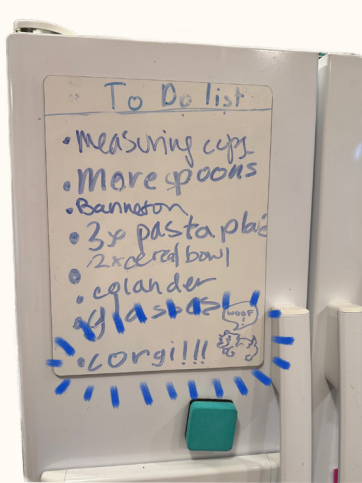 To Do list
• measuring cups
• More spoons
• Banneton
• 3x pasta plat
2x cereal bowl
• colander
• glasses
WOOF
!
• corgi!!!